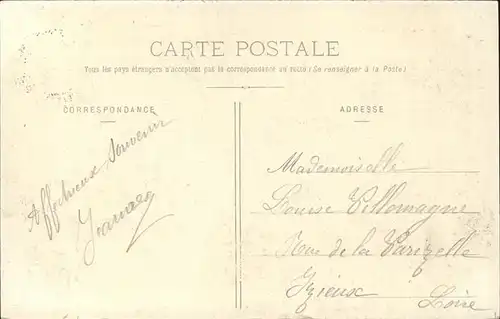 CARTE POSTALE
Tous les pays étrangers n'acceptent pas la correspondance au recto (Se renseigner à la Poste)
CORRESPONDANCE
Affectueux Souvenir
ADRESSE
Mademoiselle
Louise Villemagne
Rue de la Varizelle
Izieux
Loire